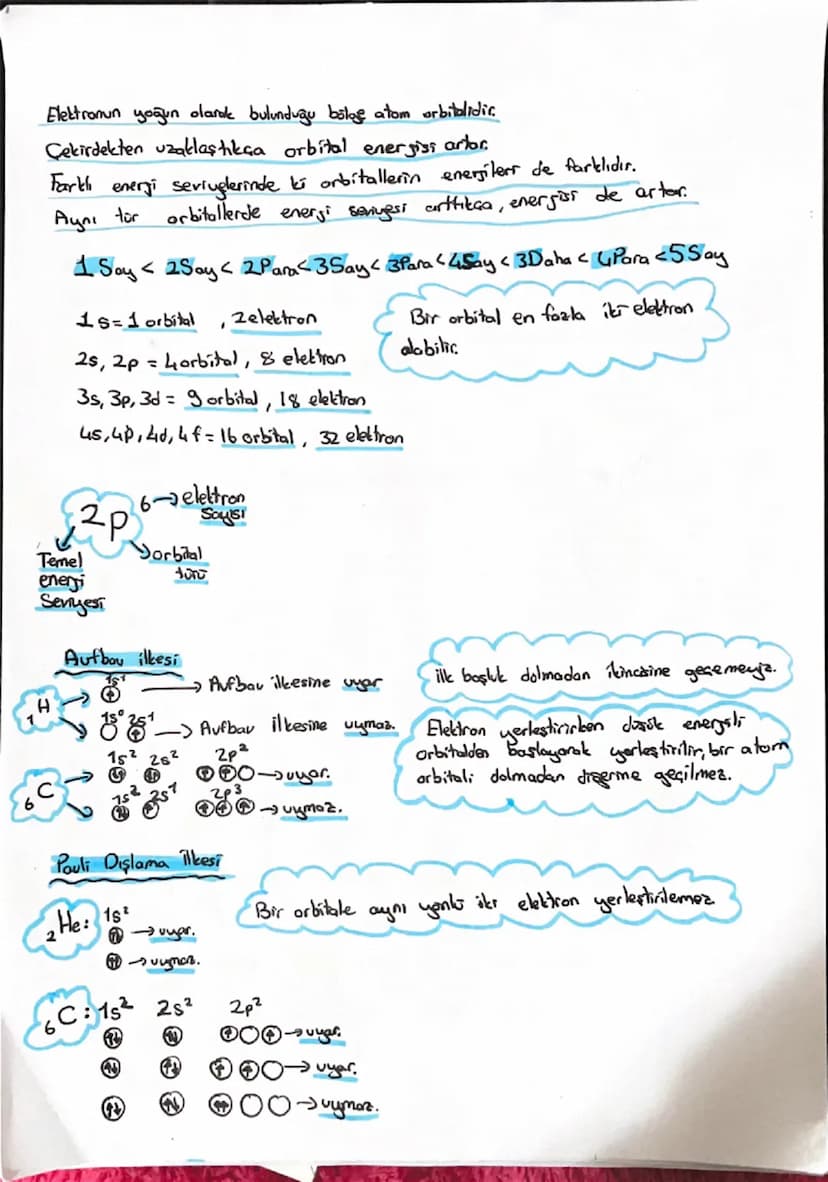 Elektronun yoğun olarak bulunduğu bölge atom orbitalidir.
Çekirdekten uzaklaştıkça orbital enerjisi artar.
Farklı enerji seviyelerinde ki orbitallerin enerjileri de farklıdır.
Aynı tür orbitallerde enerji seviyesi arttıkça, enerjisi de artar.
1 Say < 2Say < 2Para < 3Say < 3Para < 4Say < 3Daha < 4Para < 5Say
1s = 1 orbital , 2elektron
2s, 2p = 4orbital, 8 elektron
3s, 3p, 3d = 9 orbital, 18 elektron
4s, 4p, 4d, 4f = 16 orbital, 32 elektron
Bir orbital en fazla iki elektron
alabilir.
2p 6 → elektron
sayısı
orbital
türü
Temel
enerji
Seviyesi
Aufbau ilkesi
1H → 1s¹ → Aufbau ilkesine uyar
1s⁰ 2s¹ → Aufbau ilkesine uymaz.
6C → 1s² 2s² 2p² → uyar.
1s² 2s¹ 2p³ → uymaz.
ilk başlık dolmadan ikincisine geçemeyiz.
Elektron yerleştirirken düşük enerjili
orbitalden başlayarak yerleştirilir, bir atom
orbitali dolmadan diğerine geçilmez.
Pauli Dışlama İlkesi
Bir orbitale aynı yönlü iki elektron yerleştirilemez
2He: 1s²
→ uyar.
→ uymaz.
6C: 1s² 2s² 2p²
→ uyar.
→ uyar.
→ uymaz.